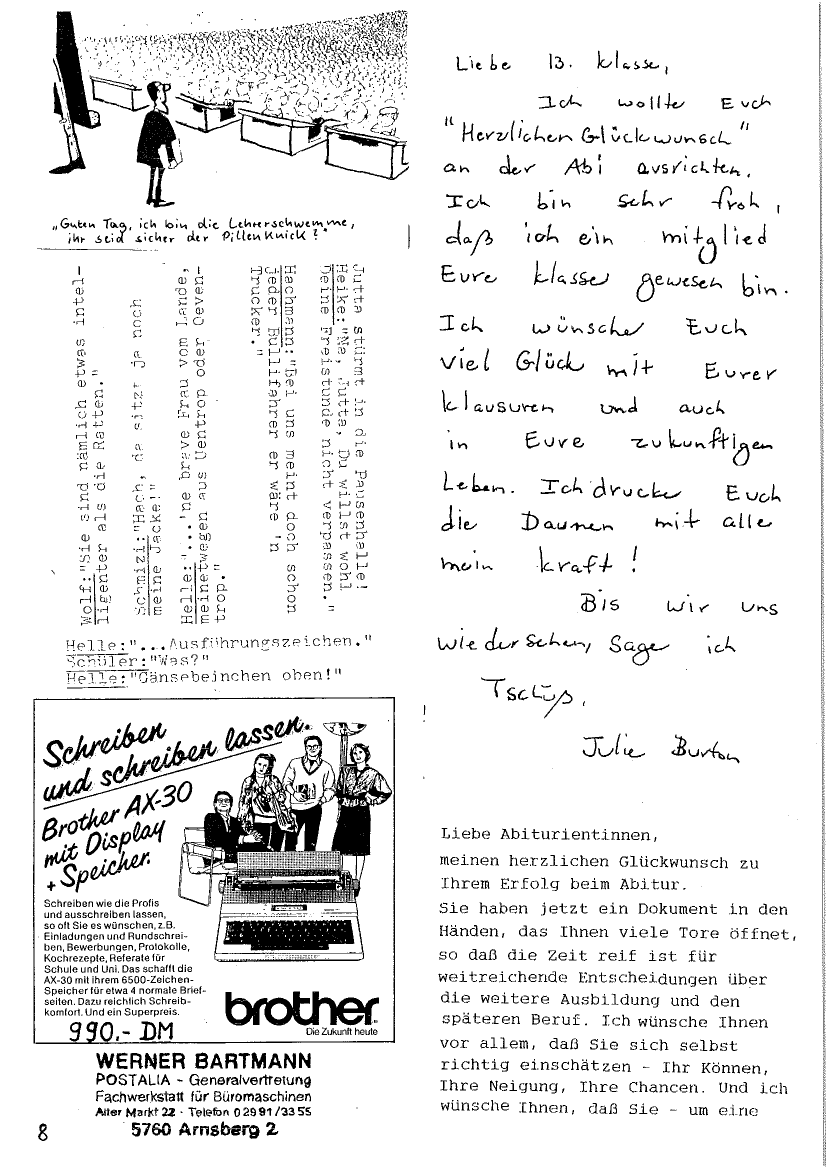 „Guten Tag, ich bin die Lehrerschwemme,
ihr seid sicher der Pillenknick!"
Jutta stürmt in die Pausenhalle!
Heike:"Na, Jutta, Du willst wohl
Deine Freistunde nicht verpassen."
Hachmann:"Bei uns meint doch schon
jeder Fullifahrer er wäre 'n
Trucker."
Helle:"...'ne brave Frau vom Lande,
meinetwegen aus Uentrop oder Oeven-
trop."
Schmizi:"Hach, da sitzt ja noch
meine Jacke!"
Wolf:"Sie sind nämlich etwas intel-
ligenter als die Ratten."
Helle:"...Ausführungszeichen."
Schüler:"Was?"
Helle:"Gänsebeinchen oben!"
Schreiben
und schreiben lassen.
Brother AX-30
mit Display
+ Speicher.
Schreiben wie die Profis
und ausschreiben lassen,
so oft Sie es wünschen, z.B.
Einladungen und Rundschrei-
ben, Bewerbungen, Protokolle,
Kochrezepte, Referate für
Schule und Uni. Das schafft die
AX-30 mit ihrem 6500-Zeichen-
Speicher für etwa 4 normale Brief-
seiten. Dazu reichlich Schreib-
komfort. Und ein Superpreis.
990.- DM
brother
Die Zukunft heute
WERNER BARTMANN
POSTALIA - Generalvertretung
Fachwerkstatt für Büromaschinen
Alter Markt 22 · Telefon 02991/3355
5760 Arnsberg 2
8
Liebe 13. klasse,
Ich wollte Euch
"Herzlichen Glückwunsch"
an der Abi ausrichten.
Ich bin sehr froh,
daß ich ein mitglied
Eure klasse gewesen bin.
Ich wünsche Euch
viel Glück mit Eurer
klausuren und auch
in Eure zukunftigen
Leben. Ich drucke Euch
die Daumen mit alle
mein kraft!
Bis wir uns
wiedersehen, sage ich
Tschüß,
Julie Burton
Liebe Abiturientinnen,
meinen herzlichen Glückwunsch zu
Ihrem Erfolg beim Abitur.
Sie haben jetzt ein Dokument in den
Händen, das Ihnen viele Tore öffnet,
so daß die Zeit reif ist für
weitreichende Entscheidungen über
die weitere Ausbildung und den
späteren Beruf. Ich wünsche Ihnen
vor allem, daß Sie sich selbst
richtig einschätzen - Ihr Können,
Ihre Neigung, Ihre Chancen. Und ich
wünsche Ihnen, daß Sie - um eine